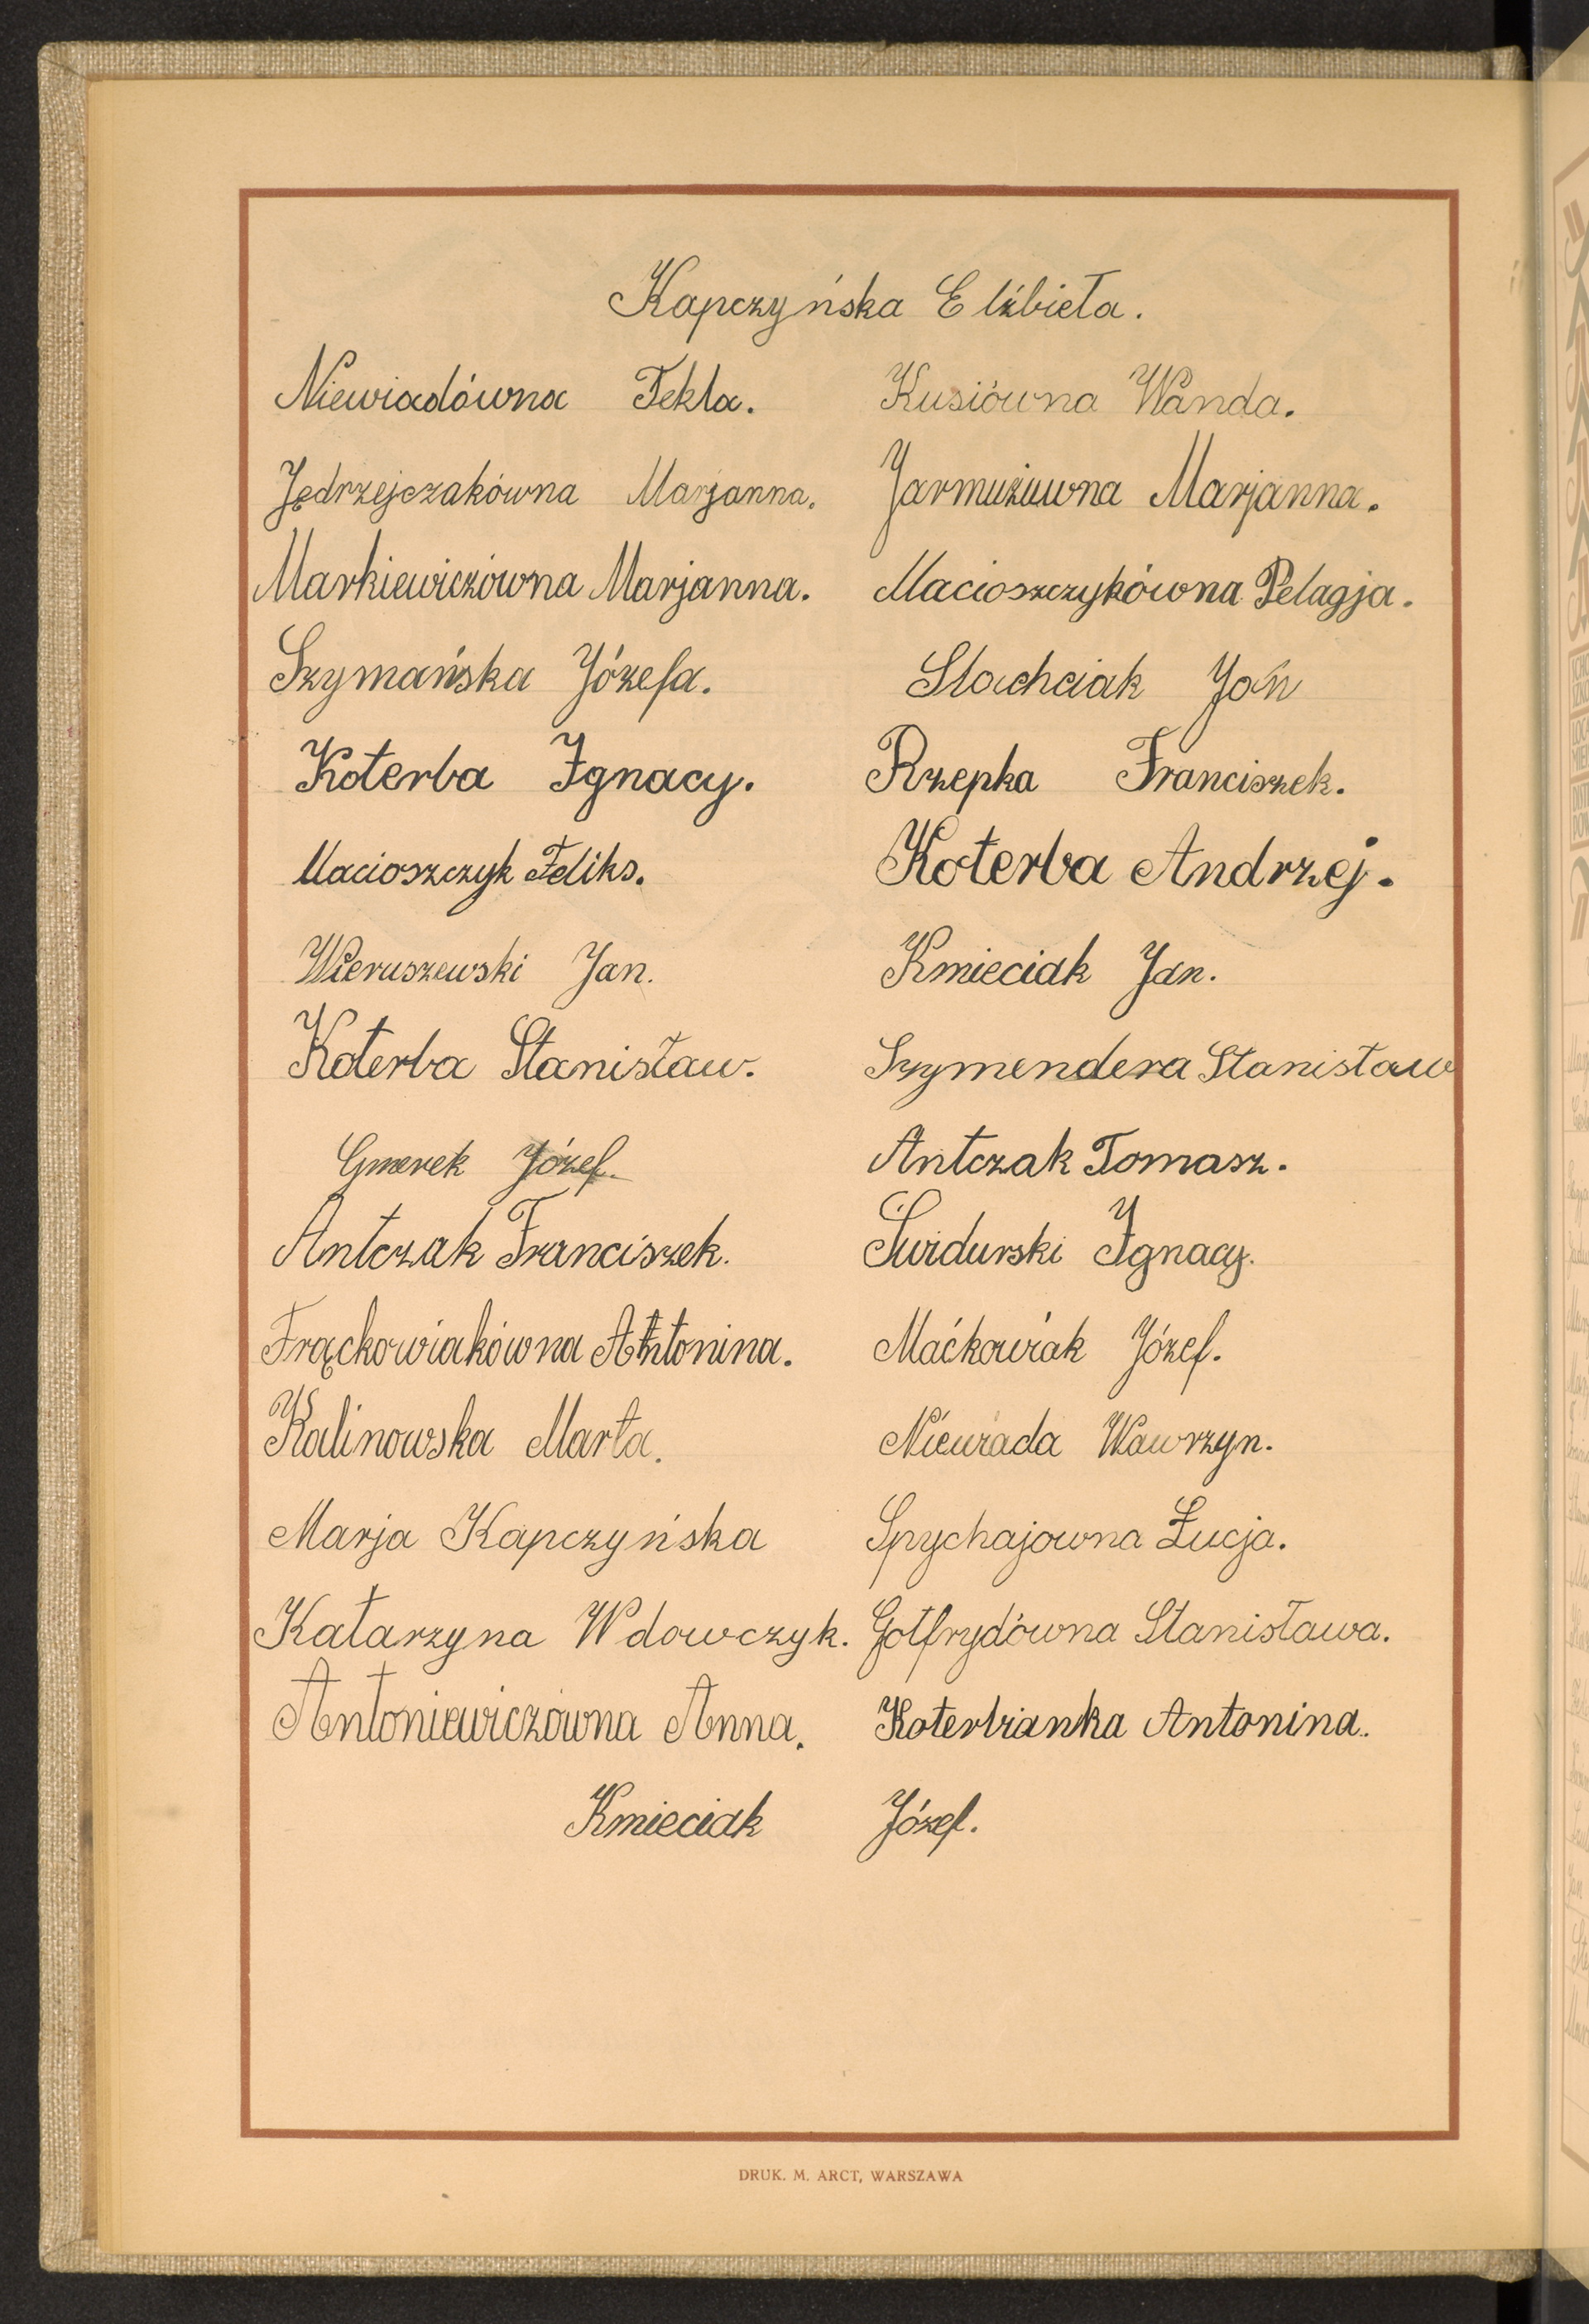 Kapczyńska Elżbieta.
Niewiadówna Tekla. Kusiówna Wanda.
Jędrzejczakówna Marjanna. Jarmużuwna Marjanna.
Markiewiczówna Marjanna. Macioszczykówna Pelagja.
Szymańska Józefa. Stachciak Jan
Koterba Ignacy. Rzepka Franciszek.
Macioszczyk Feliks. Koterba Andrzej.
Wieruszewski Jan. Kmieciak Jan.
Koterba Stanisław. Szymendera Stanisław
Gmerek Józef. Antczak Tomasz.
Antczak Franciszek. Świdurski Ignacy.
Frąckowiakówna Antonina. Maćkowiak Józef.
Kalinowska Marta. Niewiada Wawrzyn.
Marja Kapczyńska Spychajowna Łucja.
Katarzyna Wdowczyk. Gotfrydówna Stanisława.
Antoniewiczówna Anna. Koterbianka Antonina.
Kmieciak Józef.
DRUK. M. ARCT, WARSZAWA